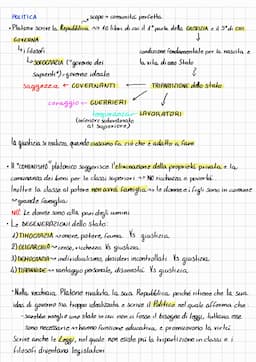 POLITICA
scopo = comunità perfetta
• Platone scrive la Repubblica → 10 libri di cui il 1° parla della GIUSTIZIA e il 5° di CHI
GOVERNA
↳ i filosofi
condizione fondamentale per la nascita e
la vita di uno Stato
↳ SOFOCRAZIA ("governo dei
sapienti") = governo ideale
saggezza ← GOVERNANTI ← TRIPARTIZIONE dello Stato
coraggio ← GUERRIERI
temperanza ← LAVORATORI
(inferiore subordinato
al superiore)
la giustizia si realizza quando ciascuno fa ciò che è adatto a fare
• Il "COMUNISMO" platonico suggerisce l'eliminazione della proprietà privata e la
comunanza dei beni per le classi superiori → NO ricchezza o povertà
Inoltre la classe al potere non avrà famiglia → le donne e i figli sono in comune
→ grande famiglia
NB: Le donne sono alla pari degli uomini
• Le DEGENERAZIONI dello Stato:
1) TIMOCRAZIA → onore, potere, fama Vs giustizia
2) OLIGARCHIA → censo, ricchezza Vs giustizia
3) DEMOCRAZIA → individualismo, desideri incontrollati Vs giustizia
4) TIRANNIDE → vantaggio personale, disonestà Vs giustizia
• Nella vecchiaia Platone rivaluta la sua Repubblica, perché ritiene che la sua
idea di governo sia troppo idealizzata e scrive il Politico nel quale afferma che
- sarebbe meglio uno stato in cui non ci fosse il bisogno di leggi, tuttavia esse
sono necessarie → hanno funzione educativa, e promuovono la virtù
Scrive anche le Leggi, nel quale non esiste più la tripartizione in classi e i
filosofi diventano legislatori